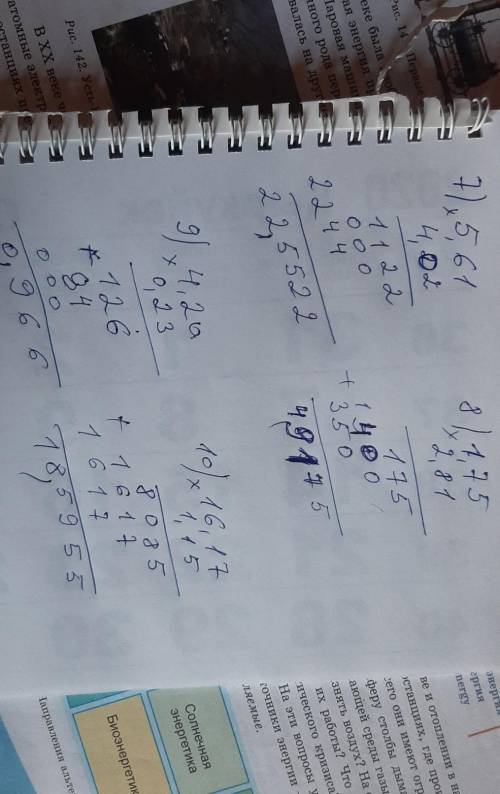 7) × 5,61
4,02
1122
000
2244
22,5522
8) 1,75
× 2,81
175
+ 1400
350
4,9175
9) 4,20
× 0,23
126
+ 84
000
0,966
10) 16,17
× 1,15
8085
+ 1617
1617
18,5955
Рис. 142. Усть-
В XX веке ч
атомные электр
останциях п
Рис. 14
Первые
еке была
ая энергия пр
Паровая маши
ного рода пер
валась на друг
энергия
ergy
ве и отоплении в н
останциях, где прои
сего они имеют огр
феру столбы дым
ающей среды газы
знять воздух? На с
их работы? Что
тического кризиса
На эти вопросы у
точники энергии
ляемые.
Солнечная
энергетика
Биоэнергетик
Направления альте